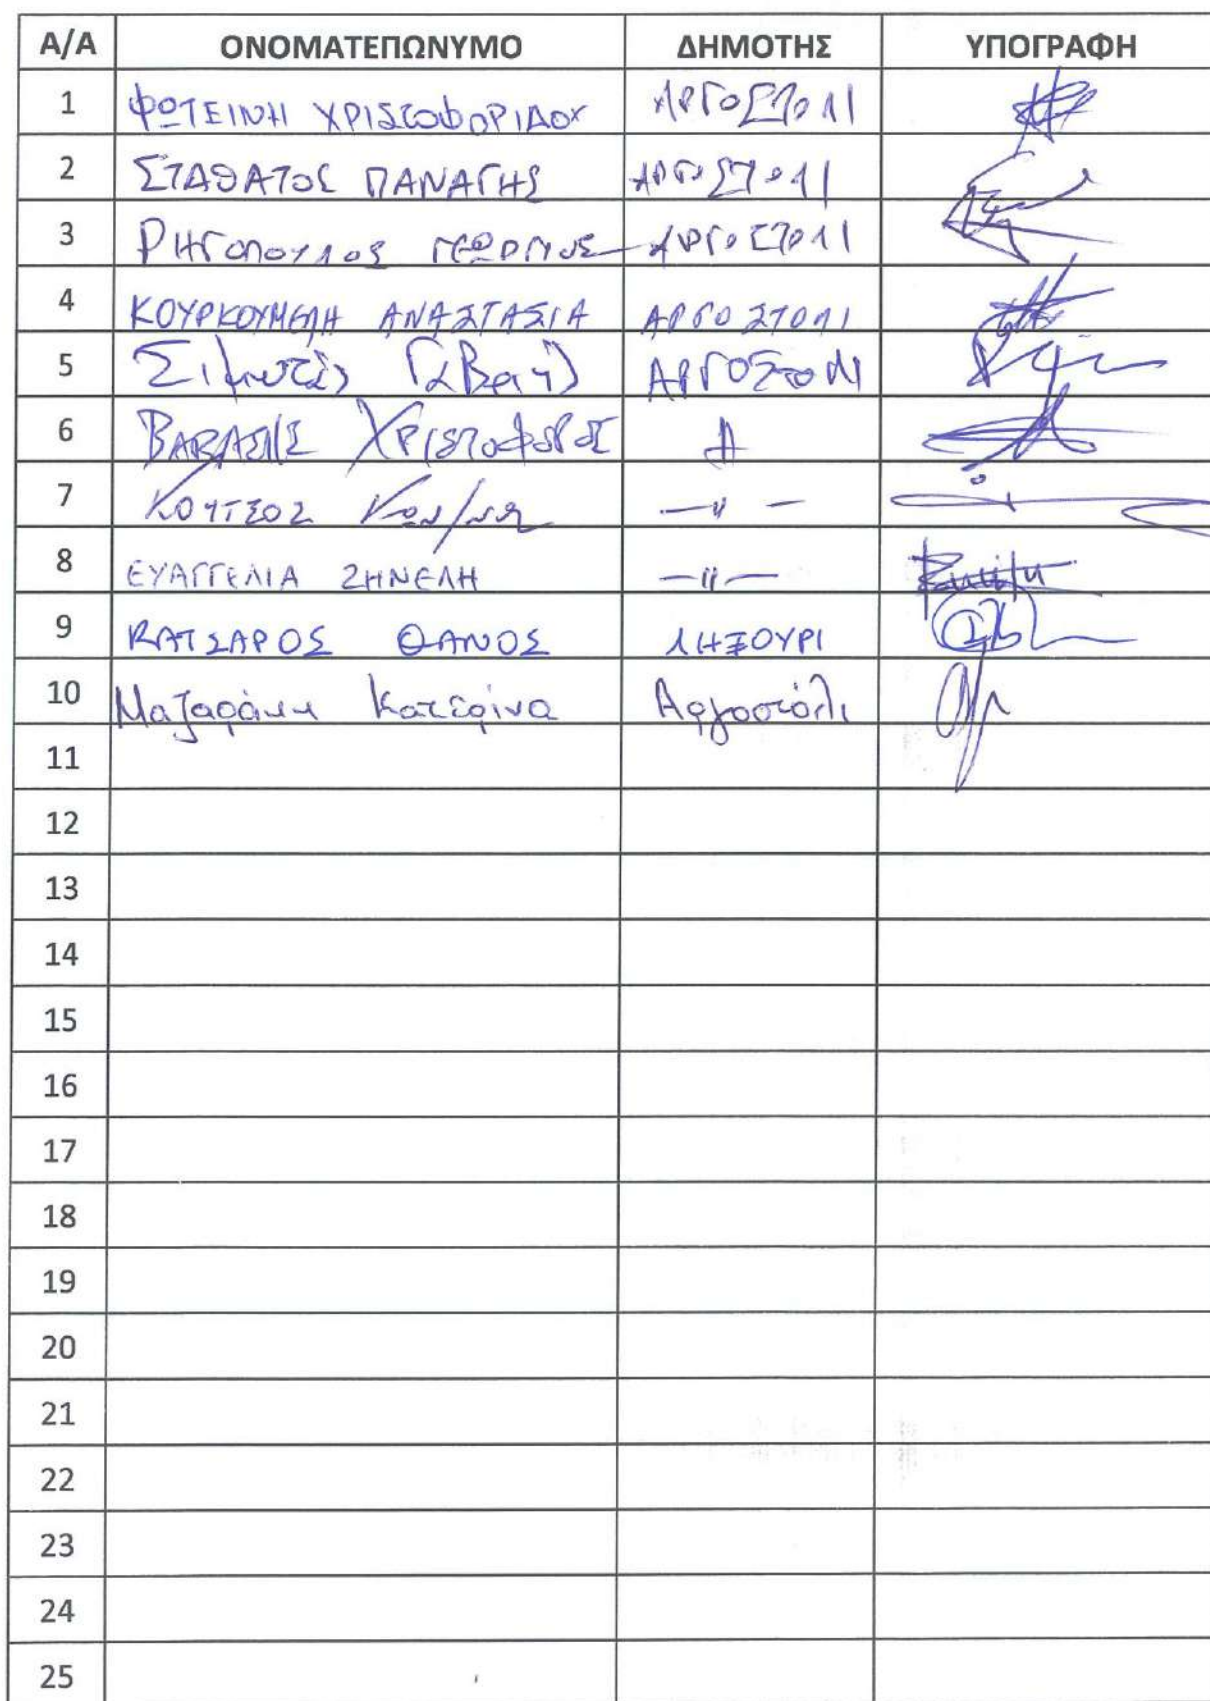 Α/Α ΟΝΟΜΑΤΕΠΩΝΥΜΟ ΔΗΜΟΤΗΣ ΥΠΟΓΡΑΦΗ
1 ΦΩΤΕΙΝΗ ΧΡΙΣΤΟΦΟΡΙΔΟΥ ΑΡΓΟΣΤΟΛΙ
2 ΣΤΑΘΑΤΟΣ ΠΑΝΑΓΗΣ ΑΡΓΟΣΤΟΛΙ
3 ΡΗΓΟΠΟΥΛΟΣ ΓΕΩΡΓΙΟΣ ΑΡΓΟΣΤΟΛΙ
4 ΚΟΥΡΚΟΥΜΕΛΗ ΑΝΑΣΤΑΣΙΑ ΑΡΓΟΣΤΟΛΙ
5 ΑΡΓΟΣΤΟΛΙ
6 ΧΡΙΣΤΟΦΟΡΟΣ
7 ΚΟΥΤΣΟΣ Κων/νος —〃—
8 ΕΥΑΓΓΕΛΙΑ ΖΗΝΕΛΗ —〃—
9 ΚΑΤΣΑΡΟΣ ΘΑΝΟΣ ΛΗΞΟΥΡΙ
10 Κατερίνα Αργοστόλι
11
12
13
14
15
16
17
18
19
20
21
22
23
24
25